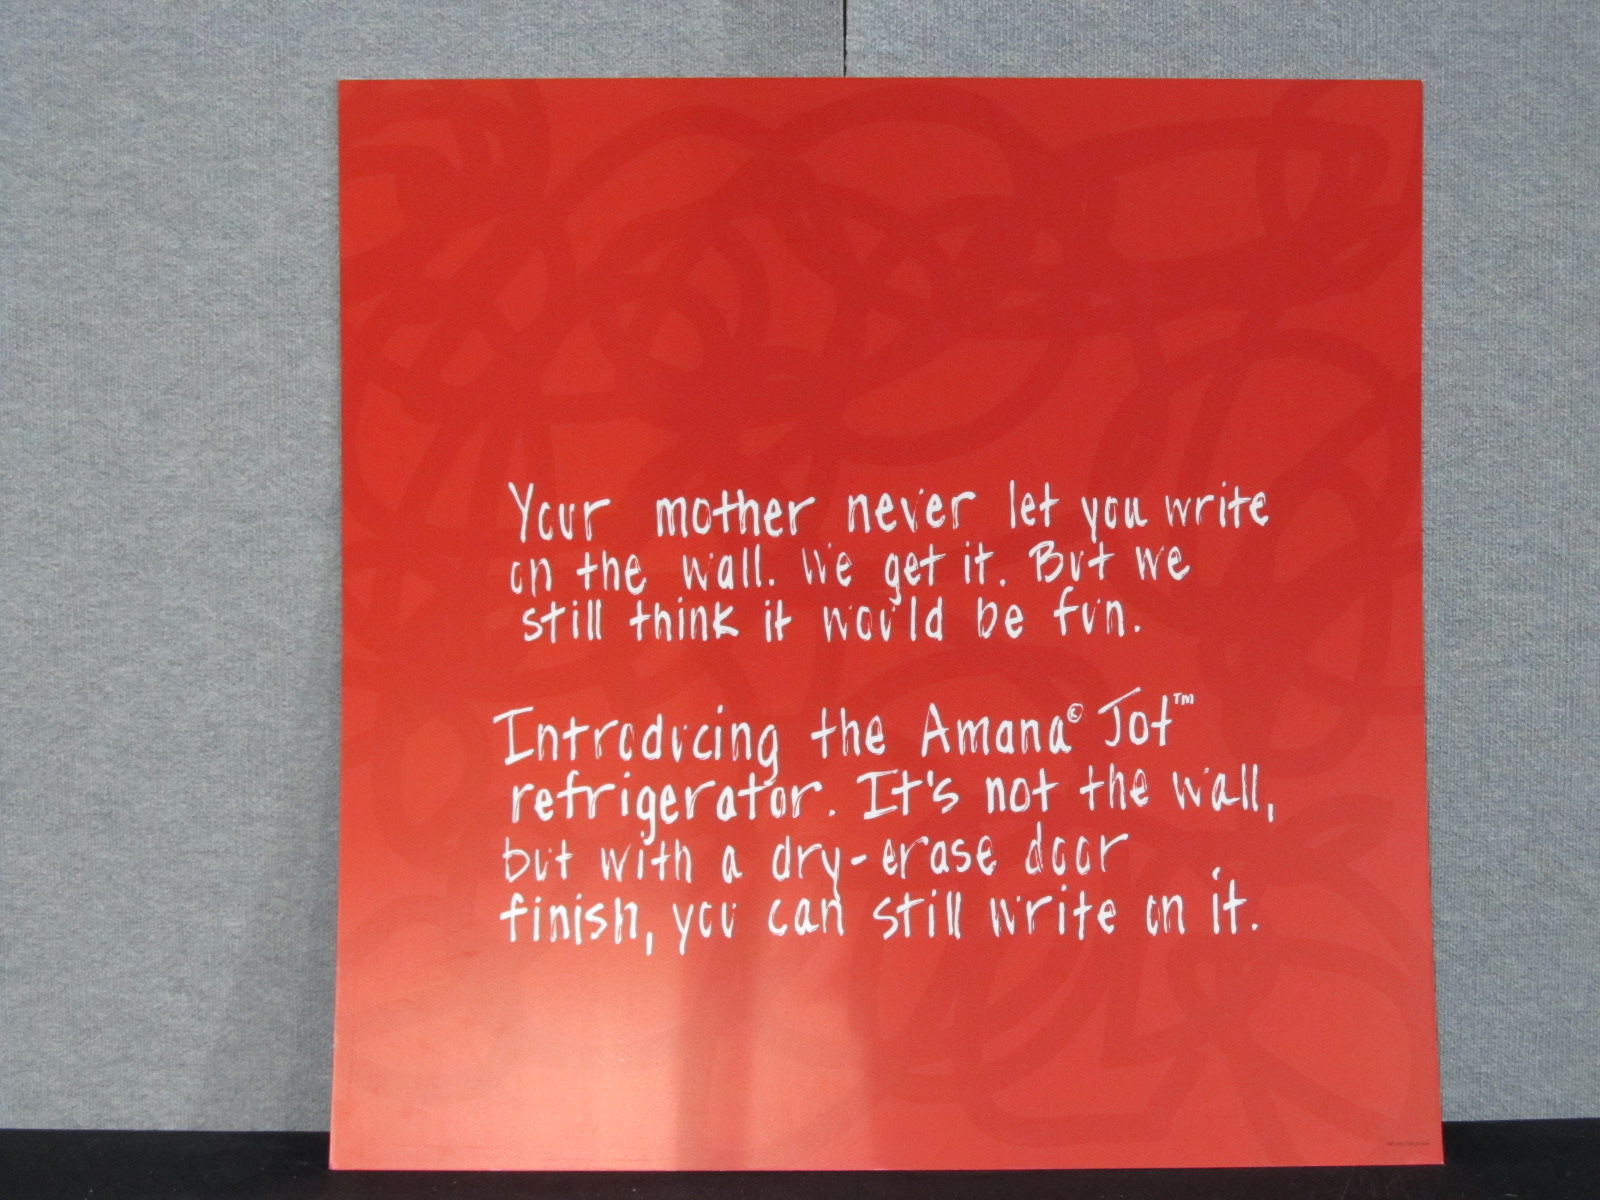 Your mother never let you write
on the wall. We get it. But we
still think it would be fun.
Introducing the Amana® Jot™
refrigerator. It's not the wall,
but with a dry-erase door
finish, you can still write on it.